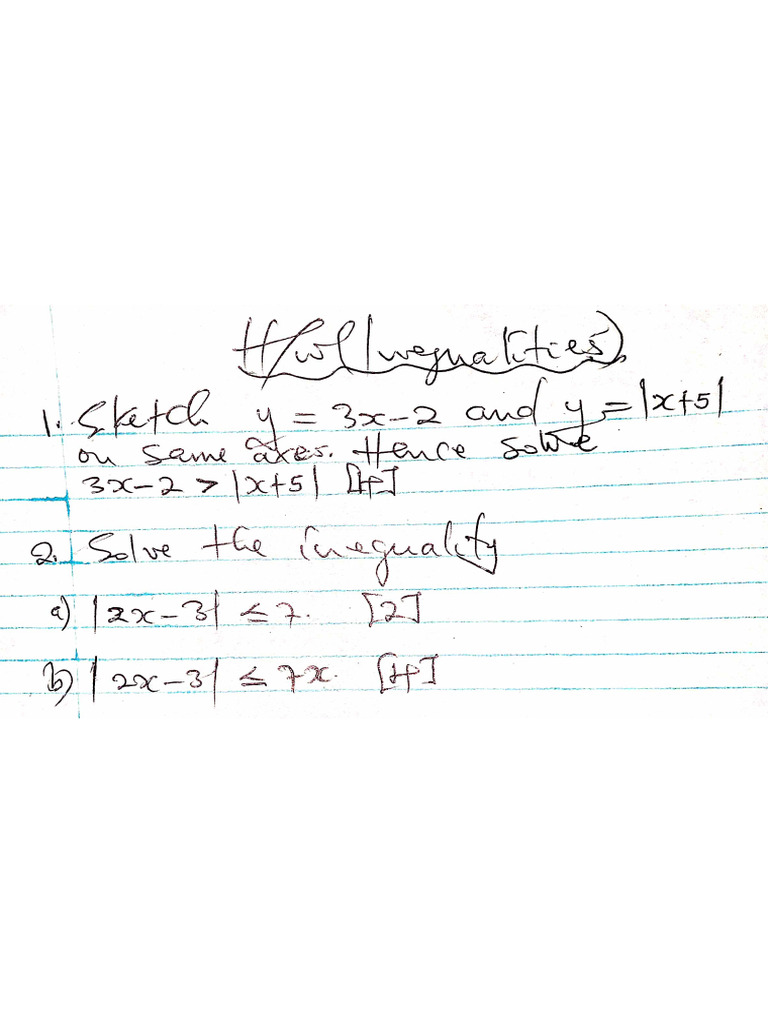 H/w(Inequalities).
1. Sketch y = 3x-2 and y = |x+5|
on same axes. Hence solve
3x-2 > |x+5| [4]
2. Solve the inequality
a) |2x-3| ≤ 7. [2]
b) |2x-3| ≤ 7x. [4]